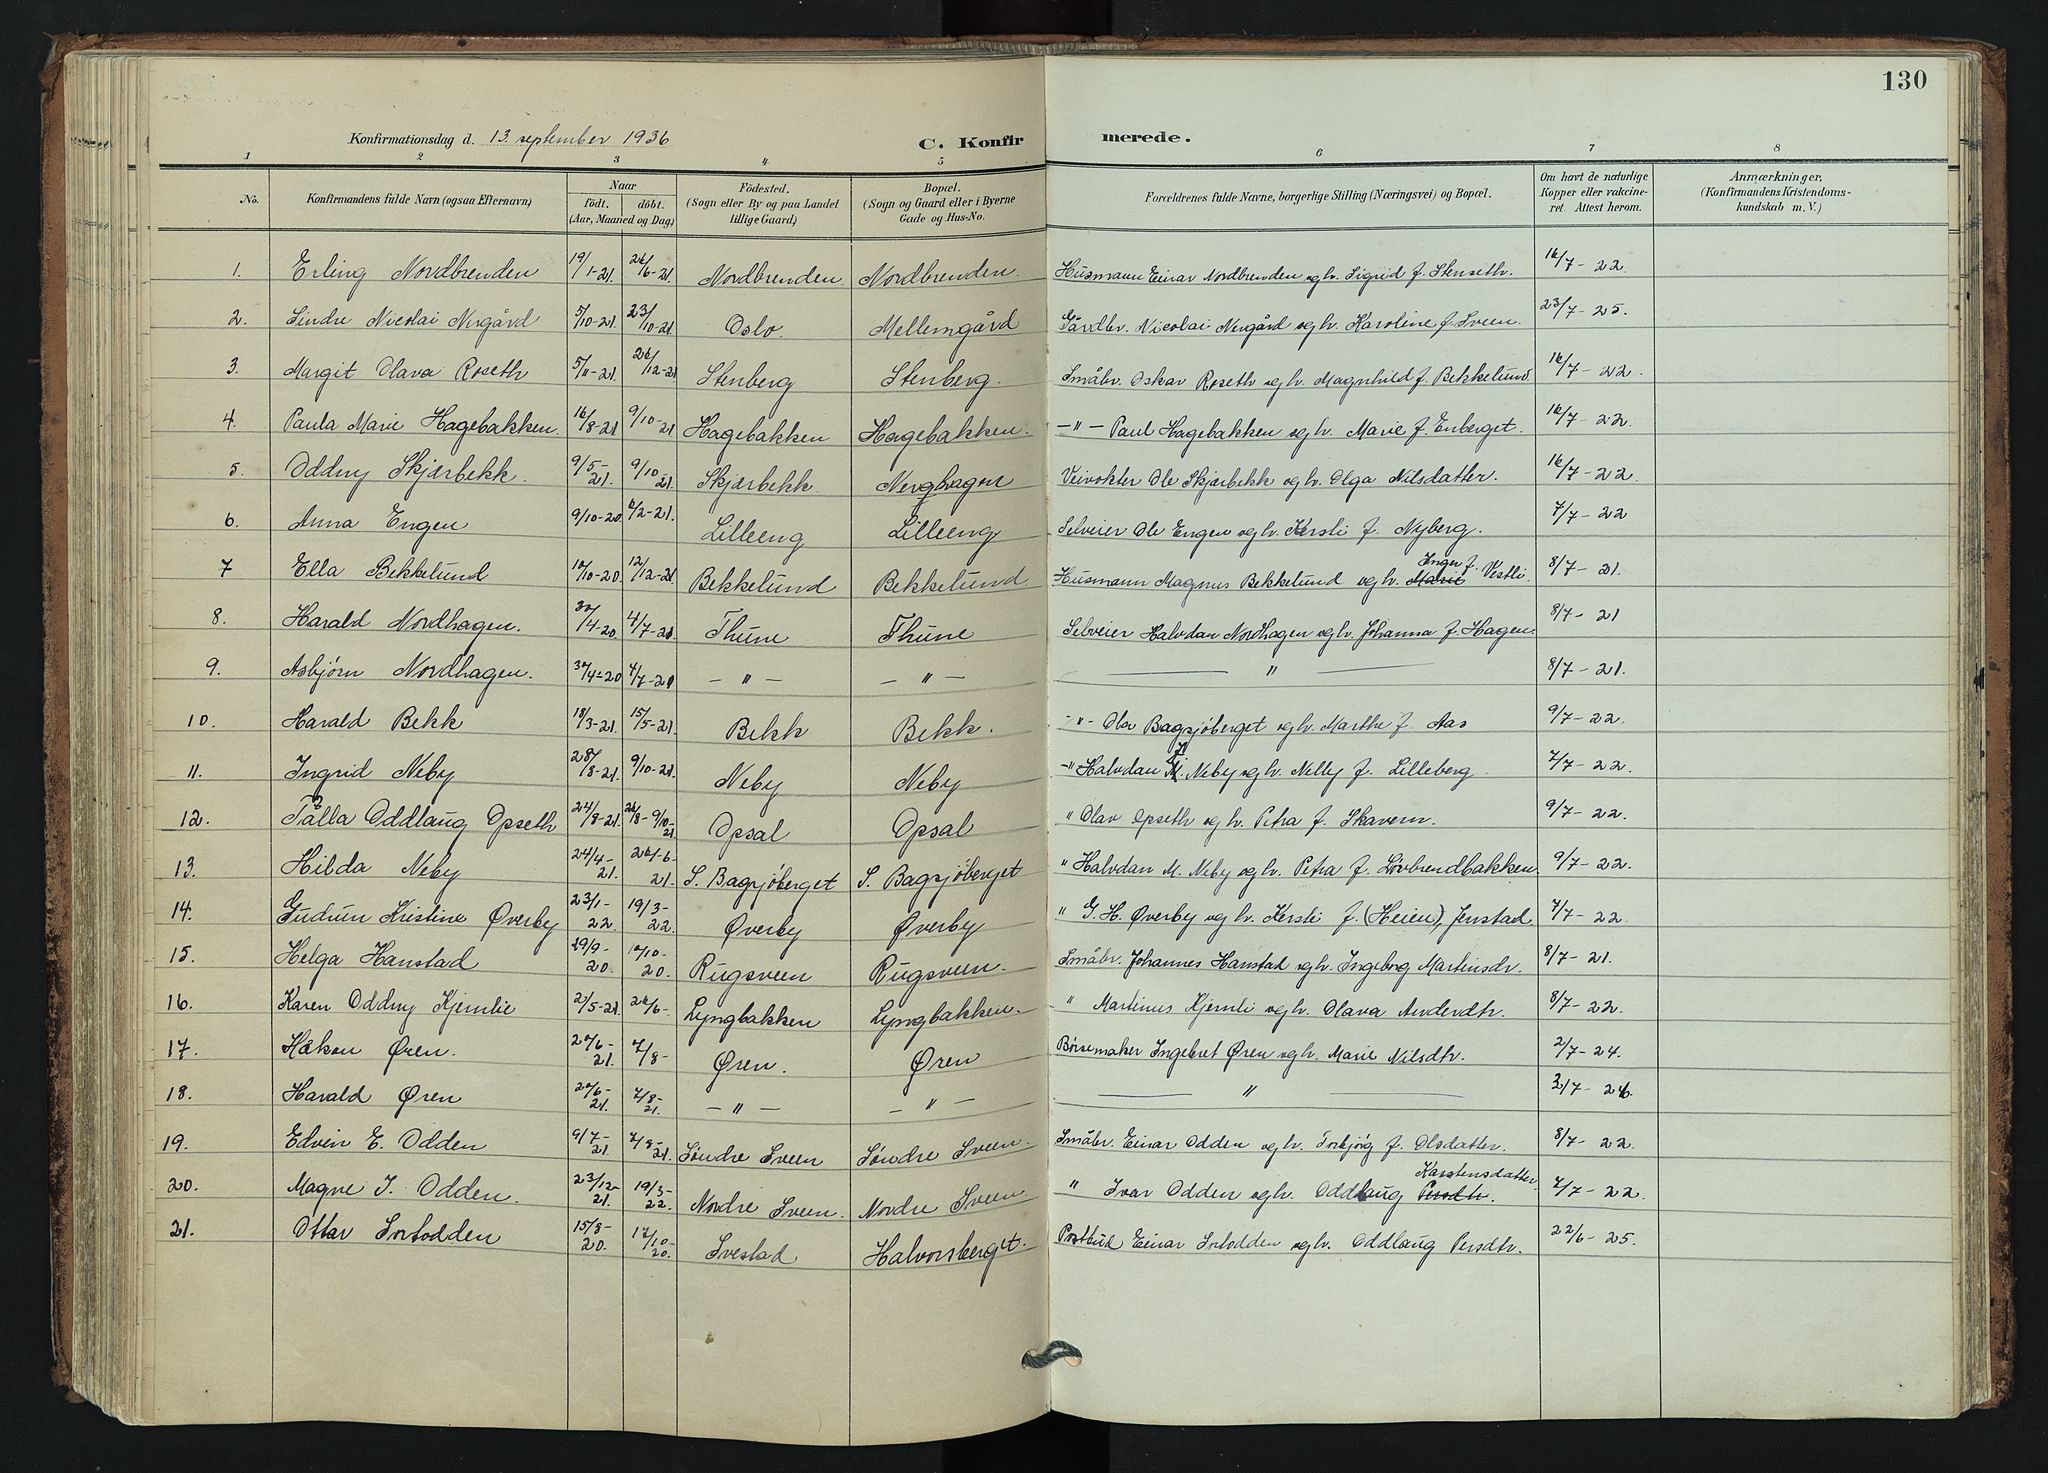 130
Konfirmationsdag d. 13. september 1936 C. Konfirmerede.
1 2 3 4 5 6 7 8
No. Konfirmandens fulde Navn (ogsaa Efternavn) Naar födt. döbt. (Aar, Maaned og Dag) Födested. (Sogn eller By og paa Landet tillige Gaard) Bopæl. (Sogn og Gaard eller i Byerne Gade og Hus-No. Forældrenes fulde Navne, borgerlige Stilling (Næringsvei) og Bopæl. Om havt de naturlige Kopper eller vakcineret. Attest herom. Anmærkninger. (Konfirmandens Kristendomskundskab m. V.)
1. Erling Nordbrenden 19/1-21. 26/6-21 Nordbrenden Nordbrenden. Husmann Einar Nordbrenden og h. Sigrid f. Stenseth. 16/7-22.
2. Sindre Nicolai Nergård 5/10-21. 23/10-21 Oslo Mellemgård Gårdbr. Nicolai Nergård og h. Karoline f. Sveen. 23/7-25.
3. Margit Olava Roseth 5/11-21. 26/12-21 Stenberg Stenberg. Småbr. Oskar Roseth og h. Magnhild f. Bekkelund. 16/7-22.
4. Paula Marie Hagebakken. 16/8-21 9/10-21 Hagebakken Hagebakken. -"- Paul Hagebakken og h. Marie f. Enberget. 16/7-22.
5. Oddny Skjærbekk. 9/5-21. 9/10-21. Skjærbekk Nerghagen Veivokter Ole Skjærbekk og h. Olga Nilsdatter. 16/7-22
6. Anna Engen 9/10-20. 6/2-21. Lilleeng Lilleeng Selveier Ole Engen og h. Kersti f. Nyberg. 7/7-22
7 Ella Bekkelund 10/10-20. 12/12-21. Bekkelund Bekkelund Husmann Magnus Bekkelund og h. Marie Inger f. Vestli. 8/7-21.
8. Harald Nordhagen. 30/4-20 4/7-20 Thune Thune Selveier Halvdan Nordhagen og h. Johanna f. Hagen. 8/7-21
9. Asbjörn Nordhagen. 30/4-20 4/7-20 -"- -"- " 8/7-21.
10. Harald Bekk 18/3-21. 15/5-21. Bekk Bekk. -"- Olav Bagsjöberget og h. Marthe f. Aas 9/7-22.
11. Ingrid Neby 28/8-21. 9/10-21. Neby Neby -"- Halvdan H. Neby og h. Nelly f. Lilleberg. 7/7-22.
12. Tålla Oddlaug Opseth 24/8-21. 9/10-21. Opsal Opsal " Olav Opseth og h. Petra f. Skavern. 9/7-22.
13. Hilda Neby 24/4-21. 26/6-21. S. Bagsjöberget S. Bagsjöberget " Halvdan M. Neby og h. Petra f. Lövbrendbakken 9/7-22.
14. Gudrun Kristine Øverby 23/1-22. 19/3-22. Øverby Øverby " G. H. Øverby og h. Kersti f. (Heien), Jenstad. 7/7-22
15. Helga Hanstad 29/9-20. 10/10-20. Rugsveen Rugsveen. Småbr. Johannes Hanstad og h. Ingeborg Martinsdr. 8/7-21.
16. Karen Oddny Kjernlie 2/5-21 26/6- Lyngbakken Lyngbakken. " Martinus Kjernli og h. Olava Anderdtr. 8/7-22.
17. Håkon Øren. 20/6-21. 7/8- Øren. Øren Börsemaker Ingebret Øren og h. Marie Nilsdtr. 2/7-24.
18. Harald Øren 20/6-21. 7/8-21. -"- -"- " 3/7-26.
19. Edvin E. Odden 9/7-21. 7/8-21. Söndre Sveen Söndre Sveen. Småbr. Einar Odden og h. Torbjörg f. Olsdatter. 8/7-22.
20. Magne I. Odden. 23/12-21. 19/3-22. Nordre Sveen. Nordre Sveen. " Ivar Odden og h. Oddlaug Persdtr. Karstensdatter. 7/7-22.
21. Ottar Sortodden 15/8-20. 17/10-20. Svestad Halvorsberget. Postbud Einar Sortodden og h. Oddlaug Persdtr. 22/6-25.